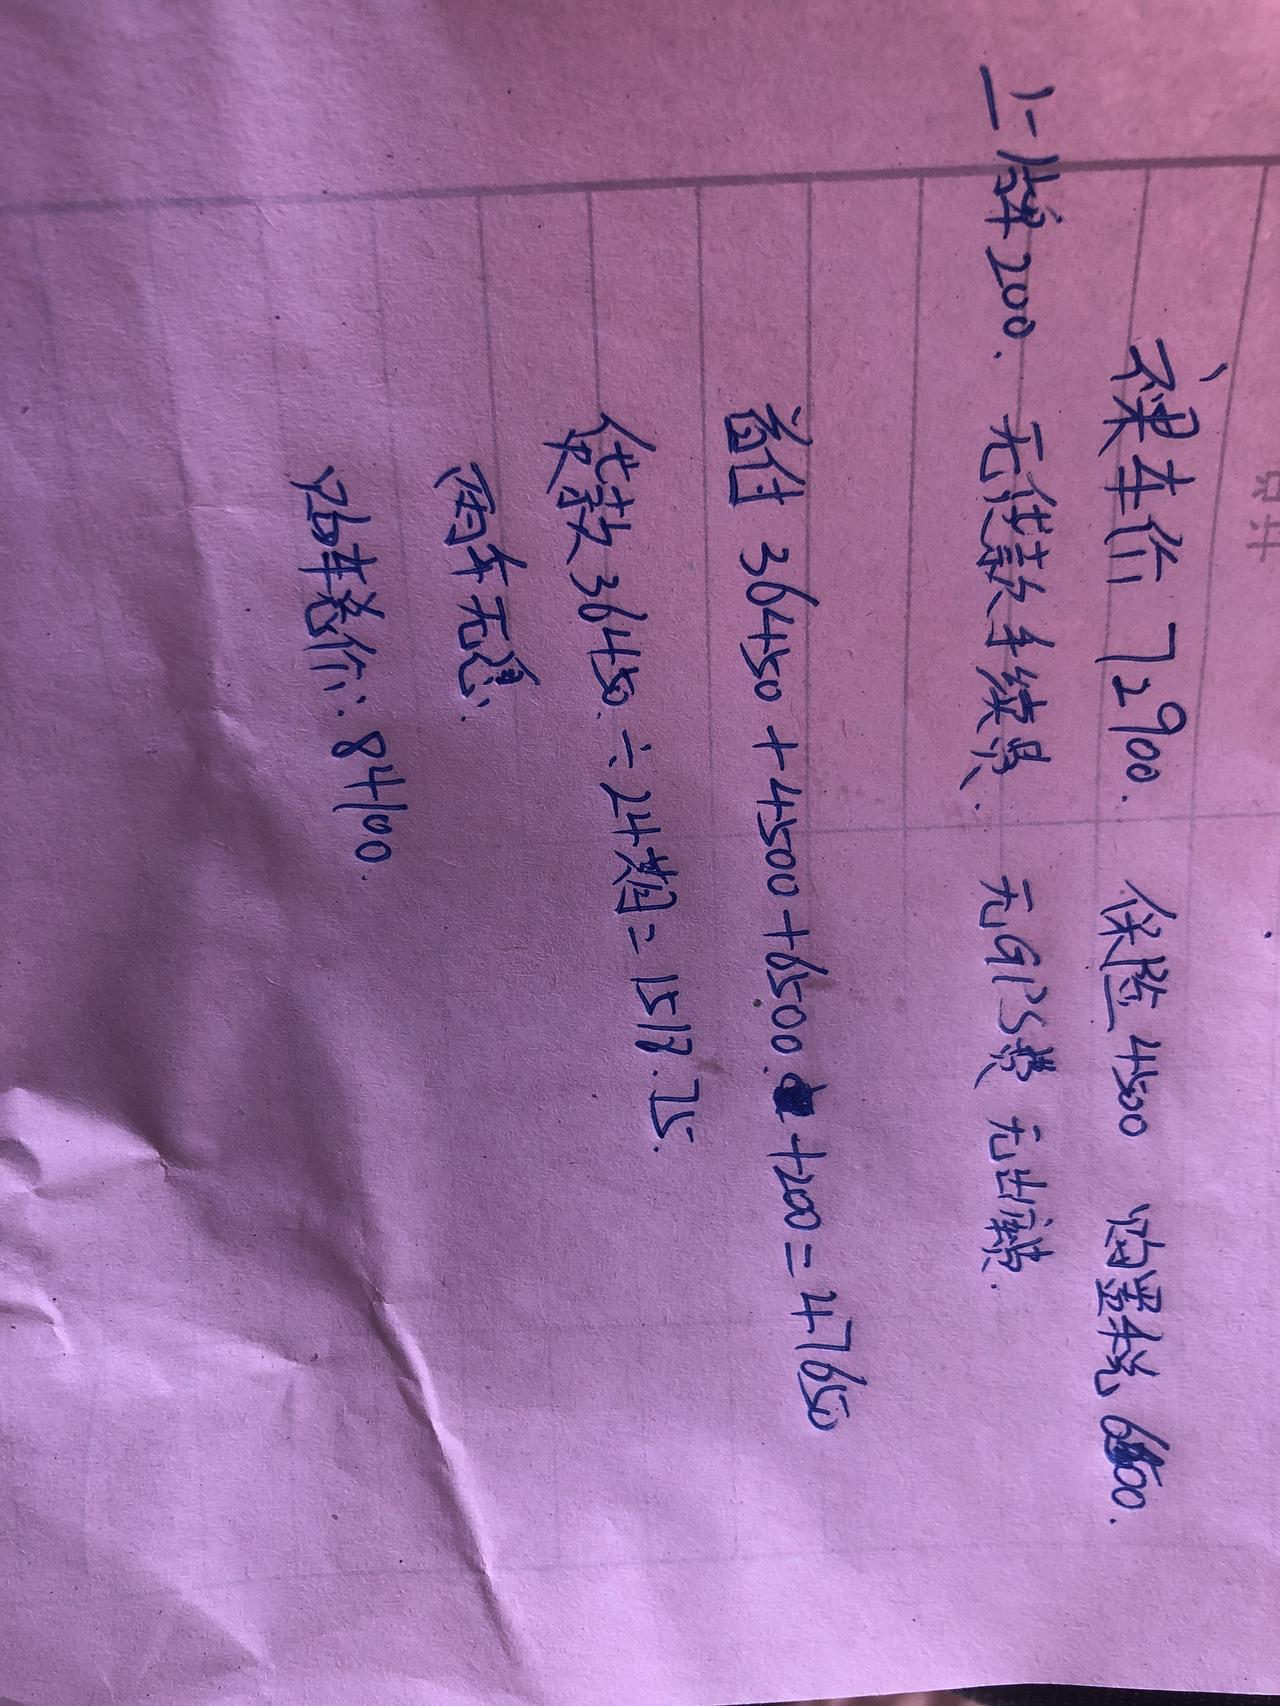 裸车价 72900. 保险 4500 购置税 6500.
上牌 200. 无贷款手续费. 无GPS费 无出库费.
首付 36450 + 4500 + 6500. +200 = 47650
贷款 36450. ÷ 24期 = 1518.75.
两年无息.
购车总价: 84100.